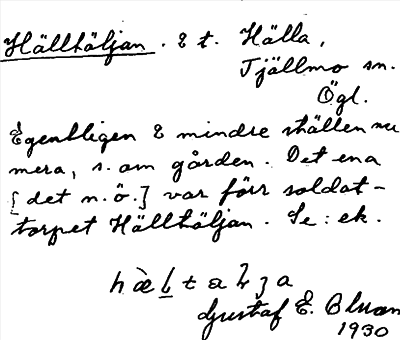 Hällhäljan. 2 t. Hälla,
Tjällmo sn.
Ögl.
Egentligen 2 mindre ställen nu
mera, s. om gården. Det ena
[det n.ö.] var förr soldat-
torpet Hällhäljan. Se: ek.
Gustaf E.
1930